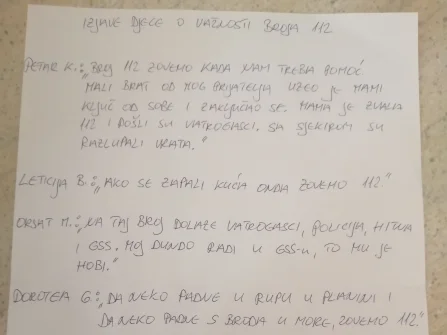 IZJAVE DJECE O VAŽNOSTI BROJA 112
PETAR K.: „BROJ 112 ZOVEMO KADA NAM TREBA POMOĆ
MALI BRAT OD MOG PRIJATELJA UZEO JE MAMI
KLJUČ OD SOBE I ZAKLJUČAO SE. MAMA JE ZVALA
112 I DOŠLI SU VATROGASCI. SA SJEKIROM SU
RAZLUPALI VRATA."
LETICIJA B.: „AKO SE ZAPALI KUĆA ONDA ZOVEMO 112."
ORSAT M.: „NA TAJ BROJ DOLAZE VATROGASCI, POLICIJA, HITNA
I GSS. MOJ DUNDO RADI U GSS-U, TO MU JE
HOBI."
DOROTEA G.: „DA NEKO PADNE U RUPU U PLANINI I
DA NEKO PADNE S BRODA U MORE, ZOVEMO 112."